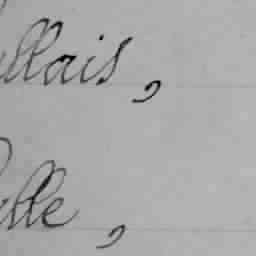 ullais,
ille,